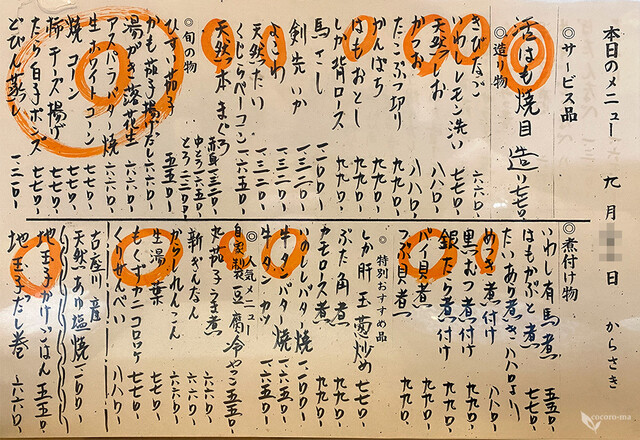 本日のメニュー 九月 日 からさき
◎サービス品
活はも焼目造り 七七〇-
◎造り物
きびなご 六六〇-
いわしレモン洗い 七七〇-
天然しお 八八〇-
かつお 八八〇-
たこぶつ切り 九九〇-
かんぱち 九九〇-
はもおとし 九九〇-
しか背ロース 九九〇-
馬さし 一一〇〇-
剣先いか 一三二〇-
よこわ 一三二〇-
天然たい 一三二〇-
くじらベーコン 一六五〇-
天然本まぐろ
赤身 一三二〇-
中とろ 一六五〇-
とろ 二二〇〇-
◎旬の物
ひすい茄子 五五〇-
かも茄子揚げだし 六六〇-
湯がき落花生 六六〇-
アスパラバター焼 八八〇-
生ホワイトコーン 七七〇-
焼コーン 七七〇-
鱧チーズ揚げ 七七〇-
たら白子ポンズ 七七〇-
どびん蒸し 一三二〇-
◎煮付け物
いわし有馬煮 五五〇-
はもかぶと煮 七七〇-
たいあら煮き 八八〇より
めいき煮付け 八八〇-
黒むつ煮付け 九九〇-
銀だら煮付け 九九〇-
バイ貝煮 九九〇-
つぶ貝煮 九九〇-
◎特別おすすめ品
しか肝玉葱炒め 七七〇-
ぶた角煮 九九〇-
カモロース煮 九九〇-
いのししバター焼 一一〇〇-
牛タンバター焼 一六五〇-
牛タンカツ 一六五〇-
◎人気メニュー
自家製豆腐冷やっこ 五五〇-
丸茄子つま煮 六六〇-
新ぎんなん 六六〇-
からしれんこん 六六〇-
生湯葉 七七〇-
もくずカニコロッケ 七七〇-
くりせんべい 八八〇-
古座川産
天然あゆ塩焼 一一〇〇-
地玉子かけごはん 五五〇-
地玉子だし巻 六六〇-
cocoro-ma